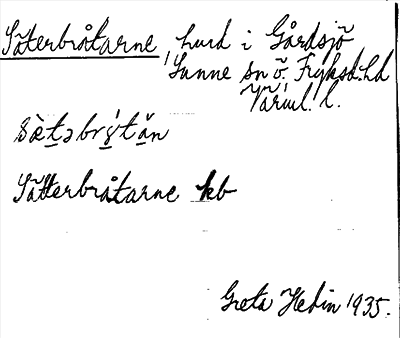 Säterbråtarne, hmd i Gårdsjö
Sunne sn Ö. Fryksd. hd
Värml. l.
Sätterbråtarne kb
Greta Hedin 1935.